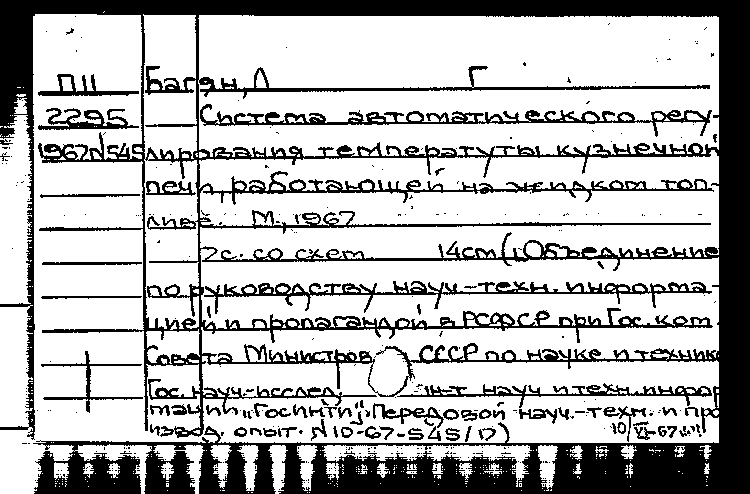 П11 Багян, Л Г
2295 Система автоматического регу-
1967 N545 лирования температуты кузнечной
печи, работающей на жидком топ-
ливе. М., 1967
7с. со схем 14см (Объединение
по руководству науч.-техн. информа-
цией и пропагандой в РСФСР при Гос. ком.
Совета Министров СССР по науке и технике
Гос. науч.-исслед. ин-т науч и техн. инфор
мации „Госинти". Передовой науч.-техн. и про
извод. опыт. N 10-67-545/17)
10/VI-67